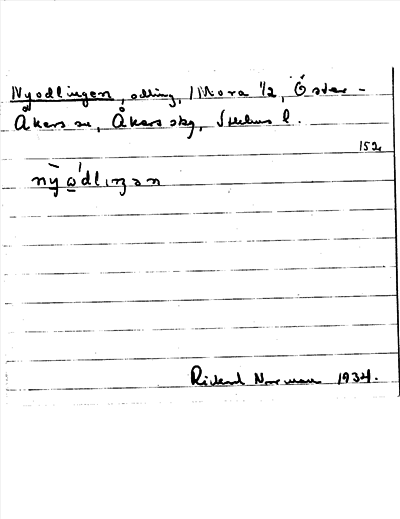 Nyodlingen, odling, 1 Mora 1/2, Öster-
Åkers sn, Åkers skg, Sthlms l.
152
nyodlingan
Rickard Norman 1934.